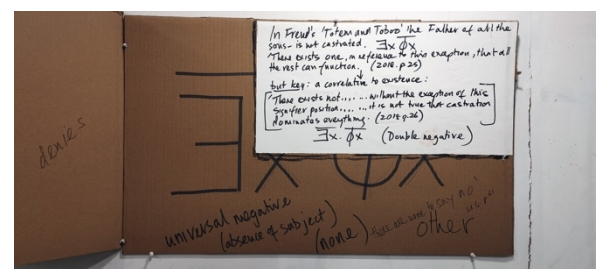 In Freud's 'Totem and Taboo' the Father of all the
sons - is not castrated. ∃x Φ̅x̅
'There exists one, in reference to this exception, that all
the rest can function. (2018. p.25)
but key: a correlative to existence:
"There exists not..... without the exception of this
signifier position...... it is not true that castration
dominates everything. (2018 p.26)
∃̅x̅. Φ̅x̅ (Double negative)
denies
∃x Φx
universal negative
(absence of subject)
(none)
to say no'
other